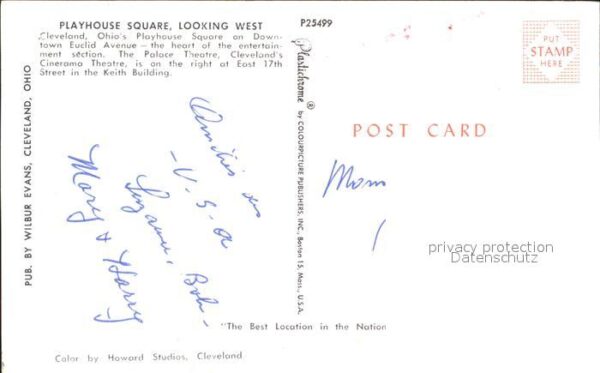 PLAYHOUSE SQUARE, LOOKING WEST
Cleveland, Ohio's Playhouse Square on Down-
town Euclid Avenue — the heart of the entertain-
ment section. The Palace Theatre, Cleveland's
Cinerama Theatre, is on the right at East 17th
Street in the Keith Building.
P25499
PUT
STAMP
HERE
PUB. BY WILBUR EVANS, CLEVELAND, OHIO
Plastichrome ® by COLOURPICTURE PUBLISHERS, INC., Boston 15, Mass., U.S.A.
POST CARD
Amitiés des
- U.S.A
Suzanne, Bob -
Mary & Harry
Mom
privacy protection
Datenschutz
"The Best Location in the Nation
Color by Howard Studios, Cleveland